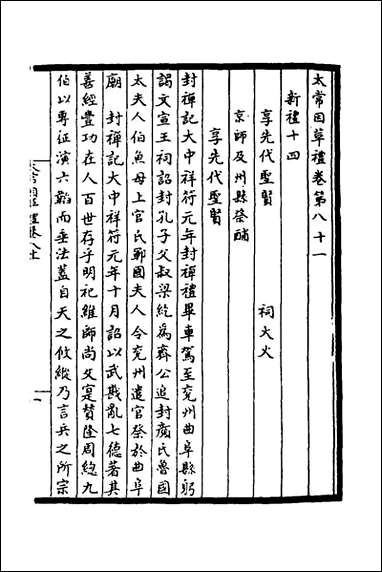 太常因革禮卷第八十一
新禮十四
享先代聖賢 祠大火
京師及州縣禜酺
享先代聖賢
封禪記大中祥符元年封禪禮畢車駕至兖州曲阜縣躬
謁文宣王祠詔封孔子父叔梁紇為齊公追封顏氏魯國
太夫人伯魚母上官氏鄆國夫人令兖州遣官祭於曲阜
廟 封禪記大中祥符元年十月詔以武戡亂七德著其
善經豊功在人百世存乎明祀維師尚父寔贊隆周緫九
伯以專征演六韜而垂法蓋自天之攸縱乃言兵之所宗